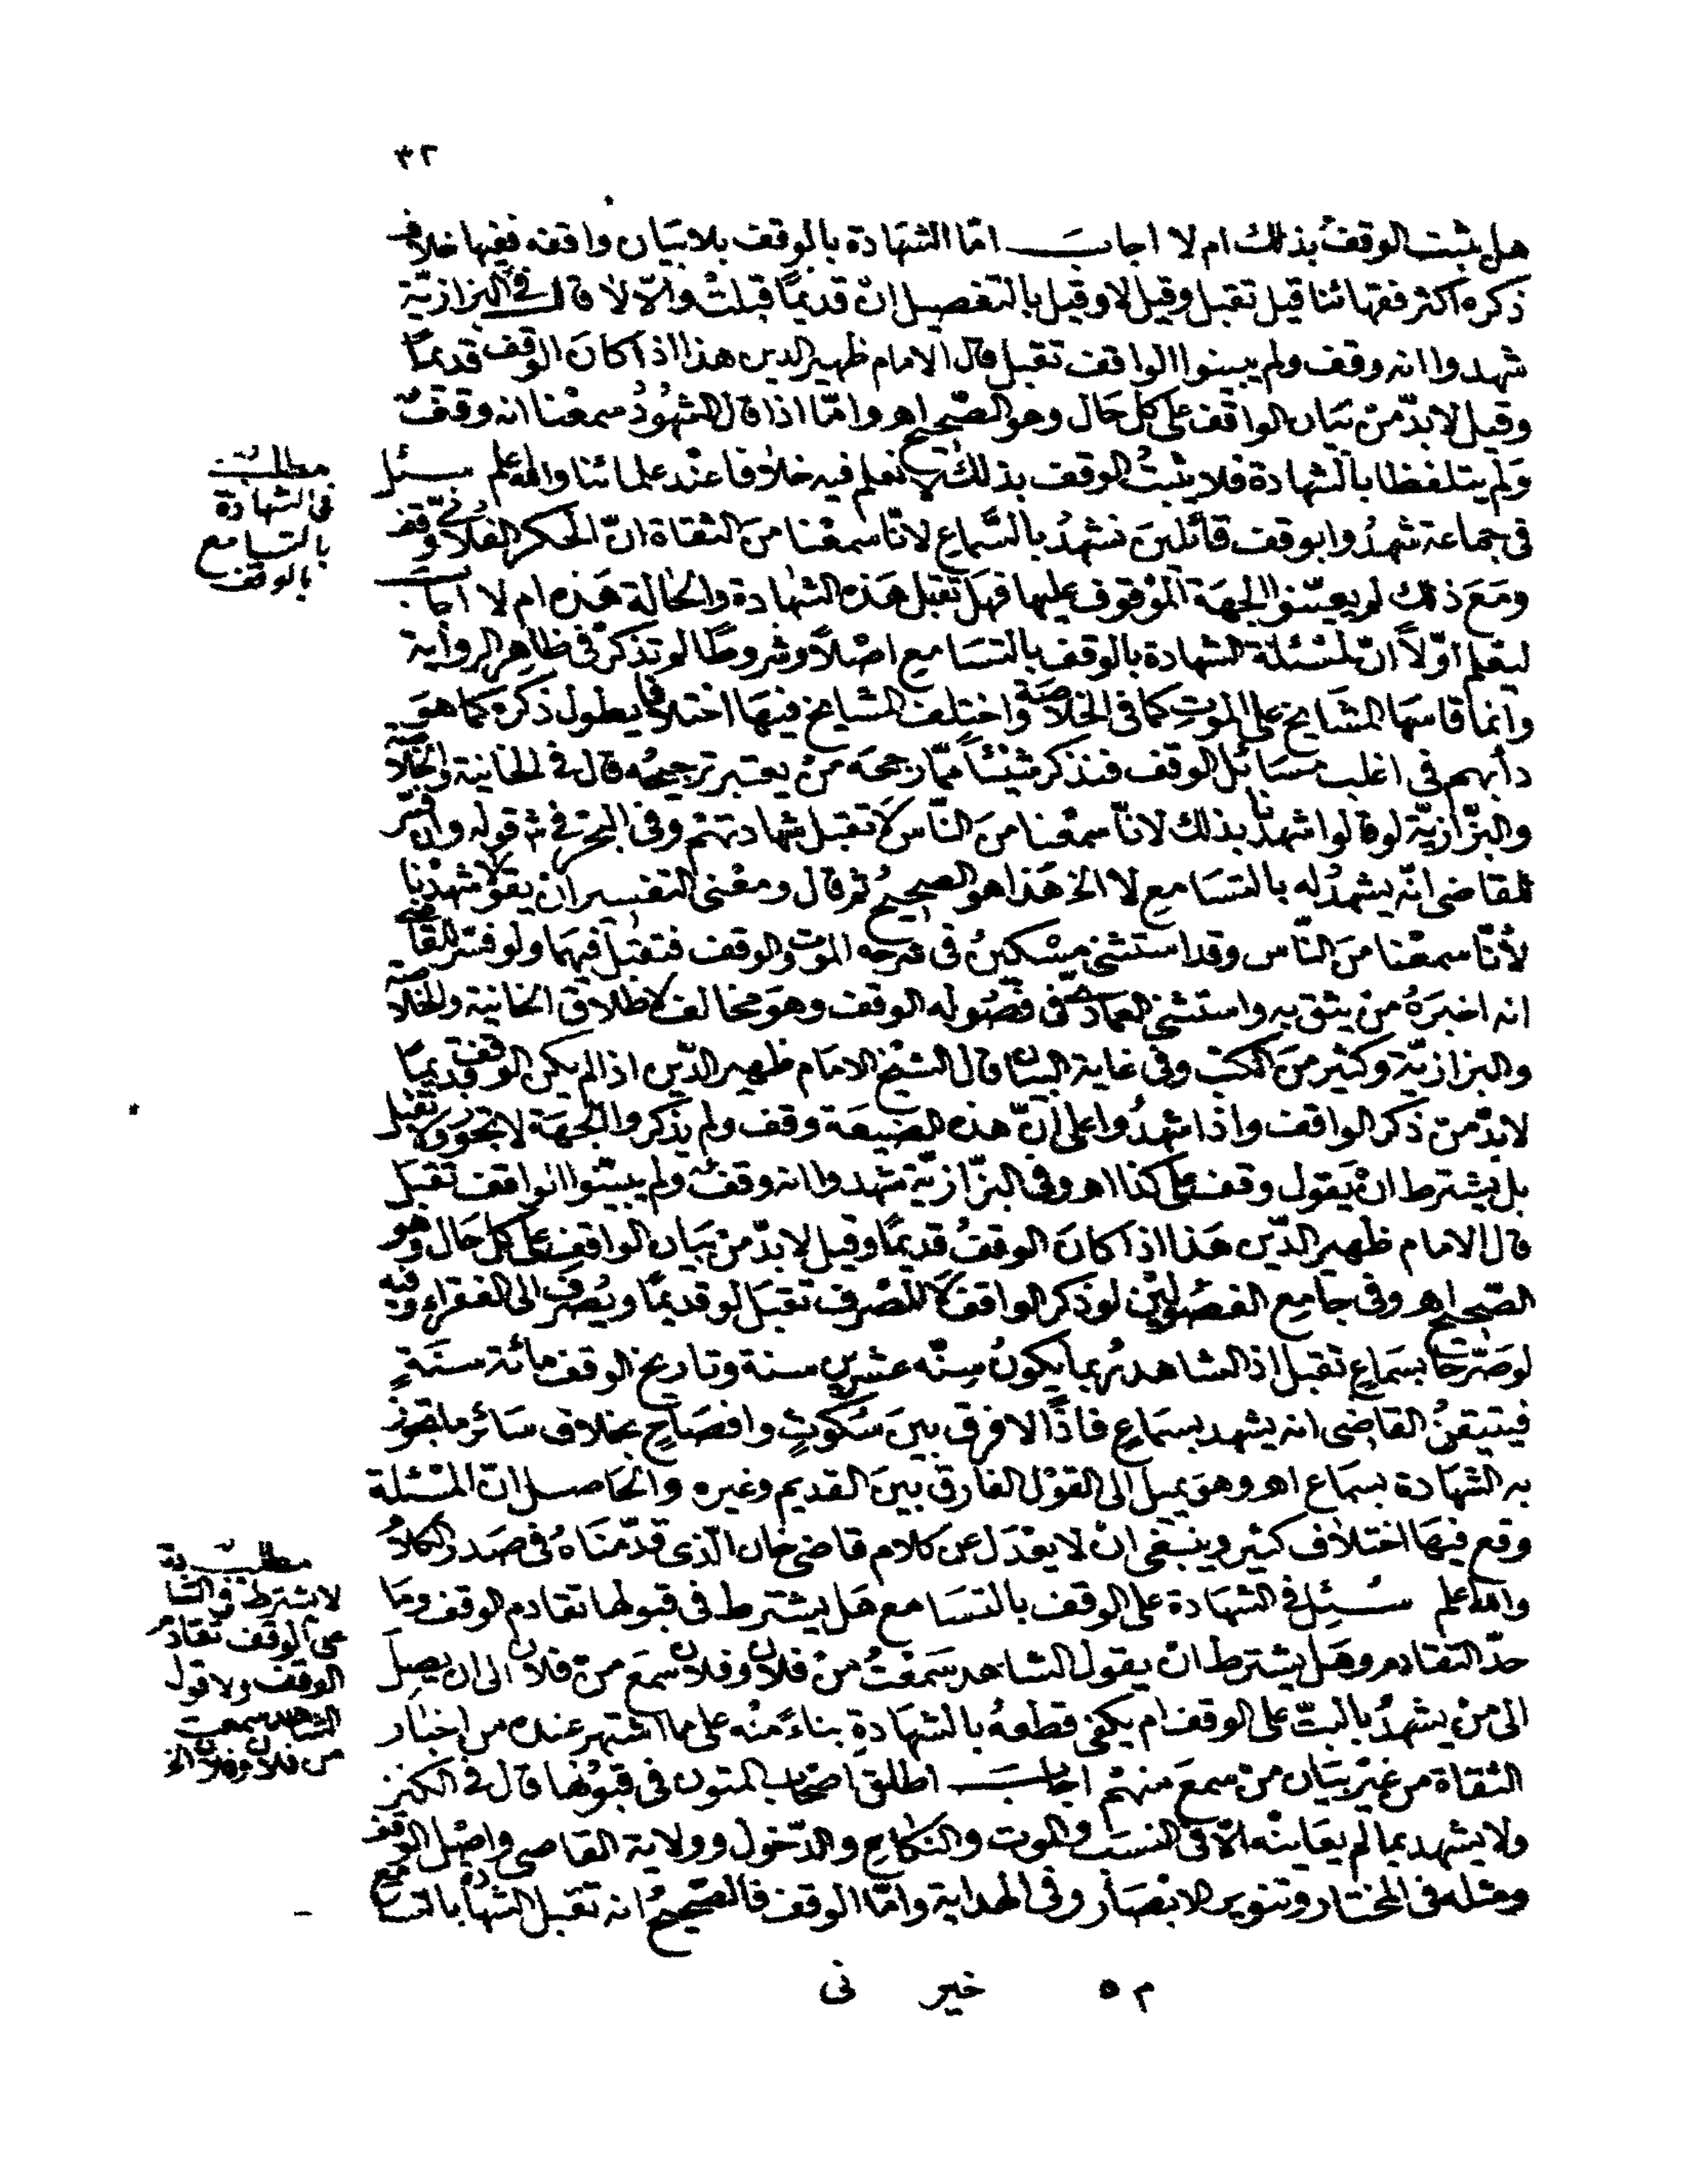 ٣٢
هل يثبت الوقف بذلك ام لا اجاب امّا الشهادة بالوقف بلا بيان واقفه ففيها خلاف
ذكره اكثر فقهائنا قيل تقبل وقيل لا وقيل بالتفصيل انّ قديمًا قبلتْ والّا لا قال في البزازيّة
شهدوا انه وقف ولم يبينوا الواقف تقبل قال الامام ظهير الدين هذا اذا كانَ الوقف قديمًا
وقيل لا بدّ منْ بَيان الواقف على كل حَال وهو الصّحيح اهـ وامّا اذا قال الشهُودُ سمعْنا انه وقفٌ
وَلم يتلفظا بالشهادة فلا يثبتُ الوقف بذلك لا نعلم فيه خلافا عنْد علمائنا والله اعلم سئل
في جماعة شهدُوا بوقف قائلينَ نشهدُ بالسَّماعِ لانّا سمعْنا منَ الثقاة انّ الحكر الفلانيّ وقف
ومَعَ ذلك لم يعيّنوا الجهَة الموْقوف عليها فهَل تقبل هَذه الشهادة والحالة هَذه ام لا اجابَ
ليعلم اوّلاً انّ لمسْئلة الشهادة بالوقف بالتسَامع اصْلاً وشروطًا لم تذكرْ في ظاهِر الرواية
وانما قاسهَا المشَايخ على الموتِ كما في الخلاصَة واختلف المشايخ فيهَا اختلافا يطول ذكرهُ كما هوَ
دأبهم في اغلب مسَائل الوقف فنذكر شيْئاً ممّا رجحَه منْ يعتبر ترجيحُه قال في الخانية والخلاصَة
والبزّازيّة لو قالوا شهدْنا بذلك لانّا سمعْنا منَ النّاس لا تقبل شهادتهمْ وفي البحر في شرح قوله وان فسّر
للقاضى انّه يشهدُ له بالتسَامع لا الخ هَذا هو الصحيحُ ثم قال ومعْنى التفسير انْ يقولا شهدْنا
لأنّا سمعْنا منَ النّاس وقد استثنى مِسْكينُ في شرحه الموت والوقف فتقبَل فيهمَا ولو فسّر للقاضي
انه اخبَرهُ منْ يثق به واستثنى العماديّ في فصُوله الوقف وهوَ مخالف لاطلاق الخانية والخلاصَة
والبزازيّة وكثير منَ الكتب وفي غاية البيَان قال الشيْخ الامَام ظهير الدّين اذا لم يكن الوقف قديمًا
لا بدّ منْ ذكر الواقف واذا شهدُوا على انّ هذه الضيعَة وقف ولم يذكروا الجهَة لا تجوز ولا تقبل
بل يشترط انْ يَقول وقف على كذا اهـ وفي البزّازيّة شهدوا انه وقفٌ ولم يبيّنوا الواقف تقبل
قال الامام ظهير الدّين هَذا اذا كانَ الوقفُ قديمًا وقيل لا بدّ منْ بيَان الواقفِ على كل حَال وهو
الصّحيح اهـ وفي جامع الفصُوليْن لو ذكر الواقفَ لا المصْرف تقبَل لو قديمًا ويُصرَف الى الفقراء وفيه
لو صرّحَا بسَماعٍ تقبل اذ الشاهد رُبما يكونُ سِنّه عشرينَ سنة وتاريخ الوقف مائة سنَةٍ
فيتيقنُ القاضى انه يشهد بسَماعٍ فاذًا لا فرق بينَ سُكوتٍ وافصَاحٍ بخلاف سَائر ما يجوز
به الشهَادة بسَماع اهـ وهوَ يميل الى القوْل الفارق بينَ القديم وغيره والحَاصل انّ المسْئلة
وقع فيهَا اختلاف كثير وينبَغى انْ لا يعْدَل عن كلام قاضى خان الّذى قدّمنَاهُ في صَدر الكلام
والله اعلم سُئِل في الشهَادة على الوقف بالتسَامع هَل يشترط في قبولها تقادم الوقف وَمَا
حدّ التقادم وهَل يشترط انْ يقول الشاهد سَمعْتُ منْ فلان وفلان سمعَ منْ فلان الى ان يصِلَ
الى منْ يشهدُ بالبتّ على الوقف ام يكفى قطعهُ بالشهَادةِ بناءً منْه على ما اشتهر عنده من اخبَار
الثقاة من غيْر بيَان منْ سمعَ منهمْ اجابَ اطلق اصْحاب المتون في قبوْلها قال في الكنز
ولا يشهد بما لم يعَاينه الّا في النسَب والموت والنكاحِ والدّخول وولاية القاضى واصْل الوقف
ومثله في المختار وتنوير الابْصَار وفي الهداية وامّا الوقف فالصّحيحُ انه تقبَل الشهادة بالتسامع
مطلب
في الشهادة
بالتسامع
بالوقف
مطلب
لا يشترط في الشهادة
على الوقف تقادم
الوقف ولا قول
الشاهد سمعت
من فلان وفلان الخ
م ٥ خير نى